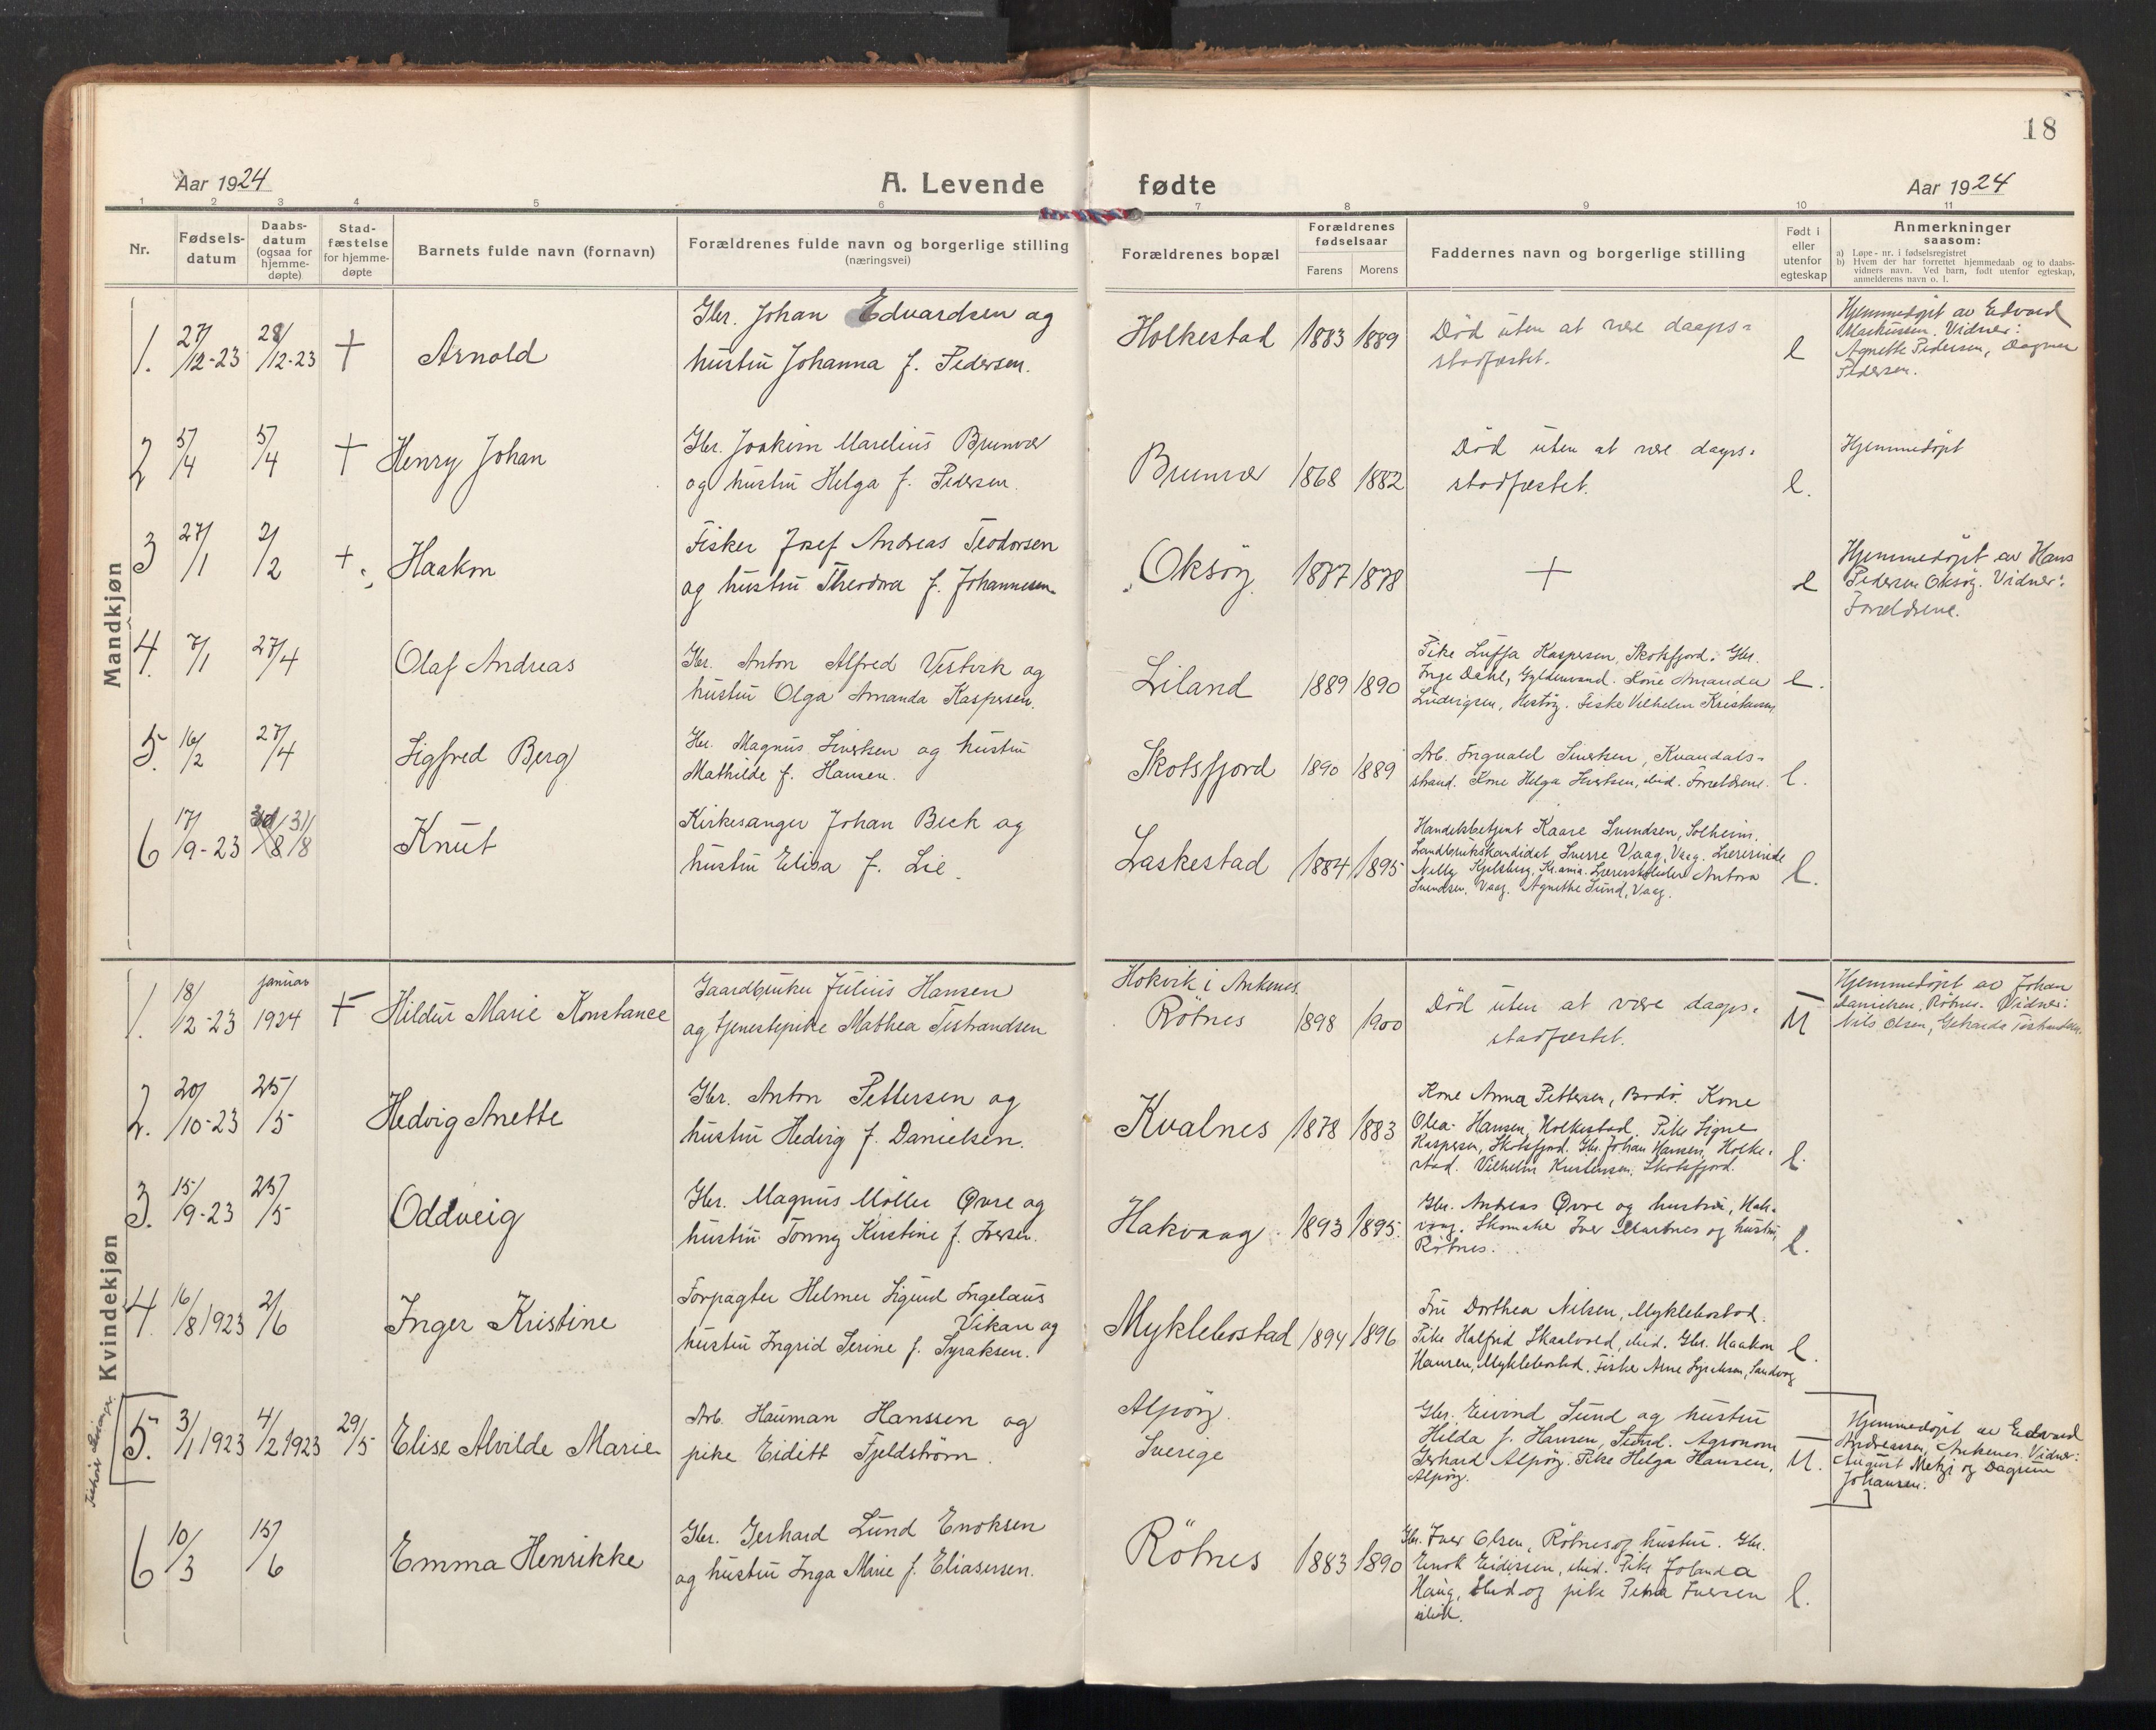 18
Aar 1924 A. Levende fødte Aar 1924
1 2 3 4 5 6 7 8 9 10 11
Nr. Fødselsdatum Daabsdatum (ogsaa for hjemmedøpte) Stadfæstelse for hjemmedøpte Barnets fulde navn (fornavn) Forældrenes fulde navn og borgerlige stilling (næringsvei) Forældrenes bopæl Forældrenes fødselsaar Farens Morens Faddernes navn og borgerlige stilling Født i eller utenfor egteskap Anmerkninger saasom:
a) Løpe-nr. i fødselsregistret
b) Hvem der har forrettet hjemmedaab og to daabsvidners navn. Ved barn, født utenfor egteskap, anmelderens navn o. l.
Mandkjøn
1. 27/12-23 28/12-23 † Arnold
Gbr. Johan Edvardsen og
hustru Johanna f. Pedersen.
Holkestad 1883 1889
Død uten at være daaps-
stadfæstet.
l
Hjemmedøpt av Edvard
Markussen. Vidner:
Agnette Pedersen, Dagmar
Pedersen.
2 5/4 5/4 † Henry Johan
Gbr. Joakim Marelius Brunvær
og hustru Helga f. Pedersen.
Brunvær 1868 1882
Død uten at være daaps-
stadfæstet.
l.
Hjemmedøpt
3 27/1 2/2 † Haakon
Fisker Josef Andreas Teodorsen
og hustru Theodora f. Johannesen.
Oksöy 1877 1878
†
l
Hjemmedøpt av Hans
Pedersen Oksöy. Vidner:
Forældrene.
4. 7/1 27/4 Olaf Andreas
Gbr. Anton Alfred Vestvik og
hustru Olga Amanda Kaspersen.
Liland 1889 1890
Pike Luffa Kaspersen, Skotsfjord. Gbr.
Inge Dahl, Gyldenvand. Kone Amanda
Ludvigsen, Hestöy. Fisker Vilhelm Kristensen
l.
5. 16/2 27/4 Sigfred Berg
Gbr. Magnus Sivertsen og hustru
Mathilde f. Hansen.
Skotsfjord 1890 1889
Arb. Ingvald Sivertsen, Kvandals-
strand. Kone Helga Sivertsen, ibid. Forældrene.
l.
6 17/9-23 31/8 Knut
Kirkesanger Johan Beck og
hustru Elisa f. Lie.
Laskestad 1884 1895
Handelsbetjent Kaare Svendsen, Solheim.
Landbrukskandidat Sverre Vaag, Vaag. Lærerinde
Nelly Kjelsberg, Kr.ania. Antora
Svendsen, Vaag. Agnethe Lund, Vaag.
l.
Kvindekjøn
1. 18/12-23 januar 1924 † Hildur Marie Konstance
Gaardbruker Julius Hansen
og tjenestepike Mathea Tistrandsen
Hokvik i Ankenes.
Rötnes 1898 1900
Død uten at være daaps-
stadfæstet.
U
Hjemmedøpt av Johan
Danielsen, Rötnes. Vidner:
Nils Olsen,
2. 20/10-23 25/5 Hedvig Anette
Gbr. Anton Pettersen og
hustru Hedvig f. Danielsen.
Kvalnes 1878 1883
Kone Anna Pettersen, Bodö. Kone
Olea Hansen, Holkestad. Pike Signe
Kaspersen, Skotsfjord. Gbr. Johan Hansen, Holke-
stad. Vilhelm Kristensen, Skotsfjord.
l.
3. 15/9-23 25/5 Oddveig
Gbr. Magnus Möller Øvre og
hustru Tonny Kirstine f. Iversen.
Hakvaag 1893 1895.
Gbr. Andreas Øvre og hustru, Hak-
vaag. Skomaker Iver Martnes og hustru,
Rötnes.
l.
4. 16/8 1923 2/6 Inger Kristine
Forpagter Helmer Sigurd Ingelaus
Vikan og
hustru Ingrid Serine f. Syraksen.
Myklebostad 1894 1896
Fru Dorthea Nilsen, Myklebostad.
Pike Halfrid Skaalvold, ibid. Gbr. Haakon
Hansen, Myklebostad. Fisker Arne Syraksen, Sandvaag
l.
5. 3/1 1923 4/2 1923 29/5 Elise Alvilde Marie
Arb. Hauman Hanssen og
pike Eiditt Fjeldström.
Alpöy.
Sverige
Gbr. Eivind Lund og hustru
Hilda f. Hansen, Lund. Agronom
Gerhard Alpöy. Pike Helga Hansen,
Alpöy.
U.
Hjemmedøpt av Edvard
Andreassen, Ankenes. Vidner:
August Metzi og Dagrun
Johansen.
6 10/3 15/6 Emma Henrikke
Gbr. Gerhard Lund Enoksen
og hustru Inga Marie f. Eliasersen.
Rötnes 1883 1890
Gbr. Iver Olsen, Rötnes og hustru. Gbr.
Enok Eidissen, ibid. Pike Jolanda
Haug, ibid og pike Petra Iversen
ibid.
l.